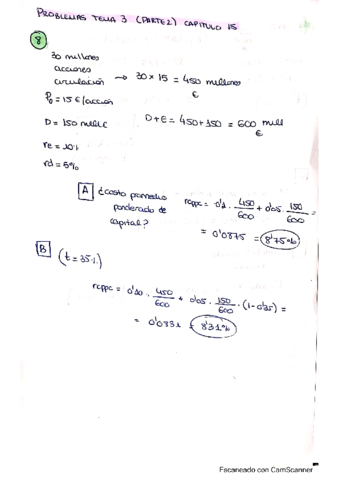 PROBLEMAS TEMA 3 (PARTE 2) CAPITULO 15
8
30 millones
acciones
circulación → 30 × 15 = 450 millones €
P₀ = 15 €/acción
D = 150 mill € D+E = 450+150 = 600 mill €
re = 10%
rd = 5%
A ¿costo promedio ponderado de capital?
rcppc = 0'1 · 450/600 + 0'05 · 150/600 =
= 0'0875 = 8'75%
B (t = 35%)
rcppc = 0'10 · 450/600 + 0'05 · 150/600 · (1-0'35) =
= 0'0831 = 8'31%
Escaneado con CamScanner